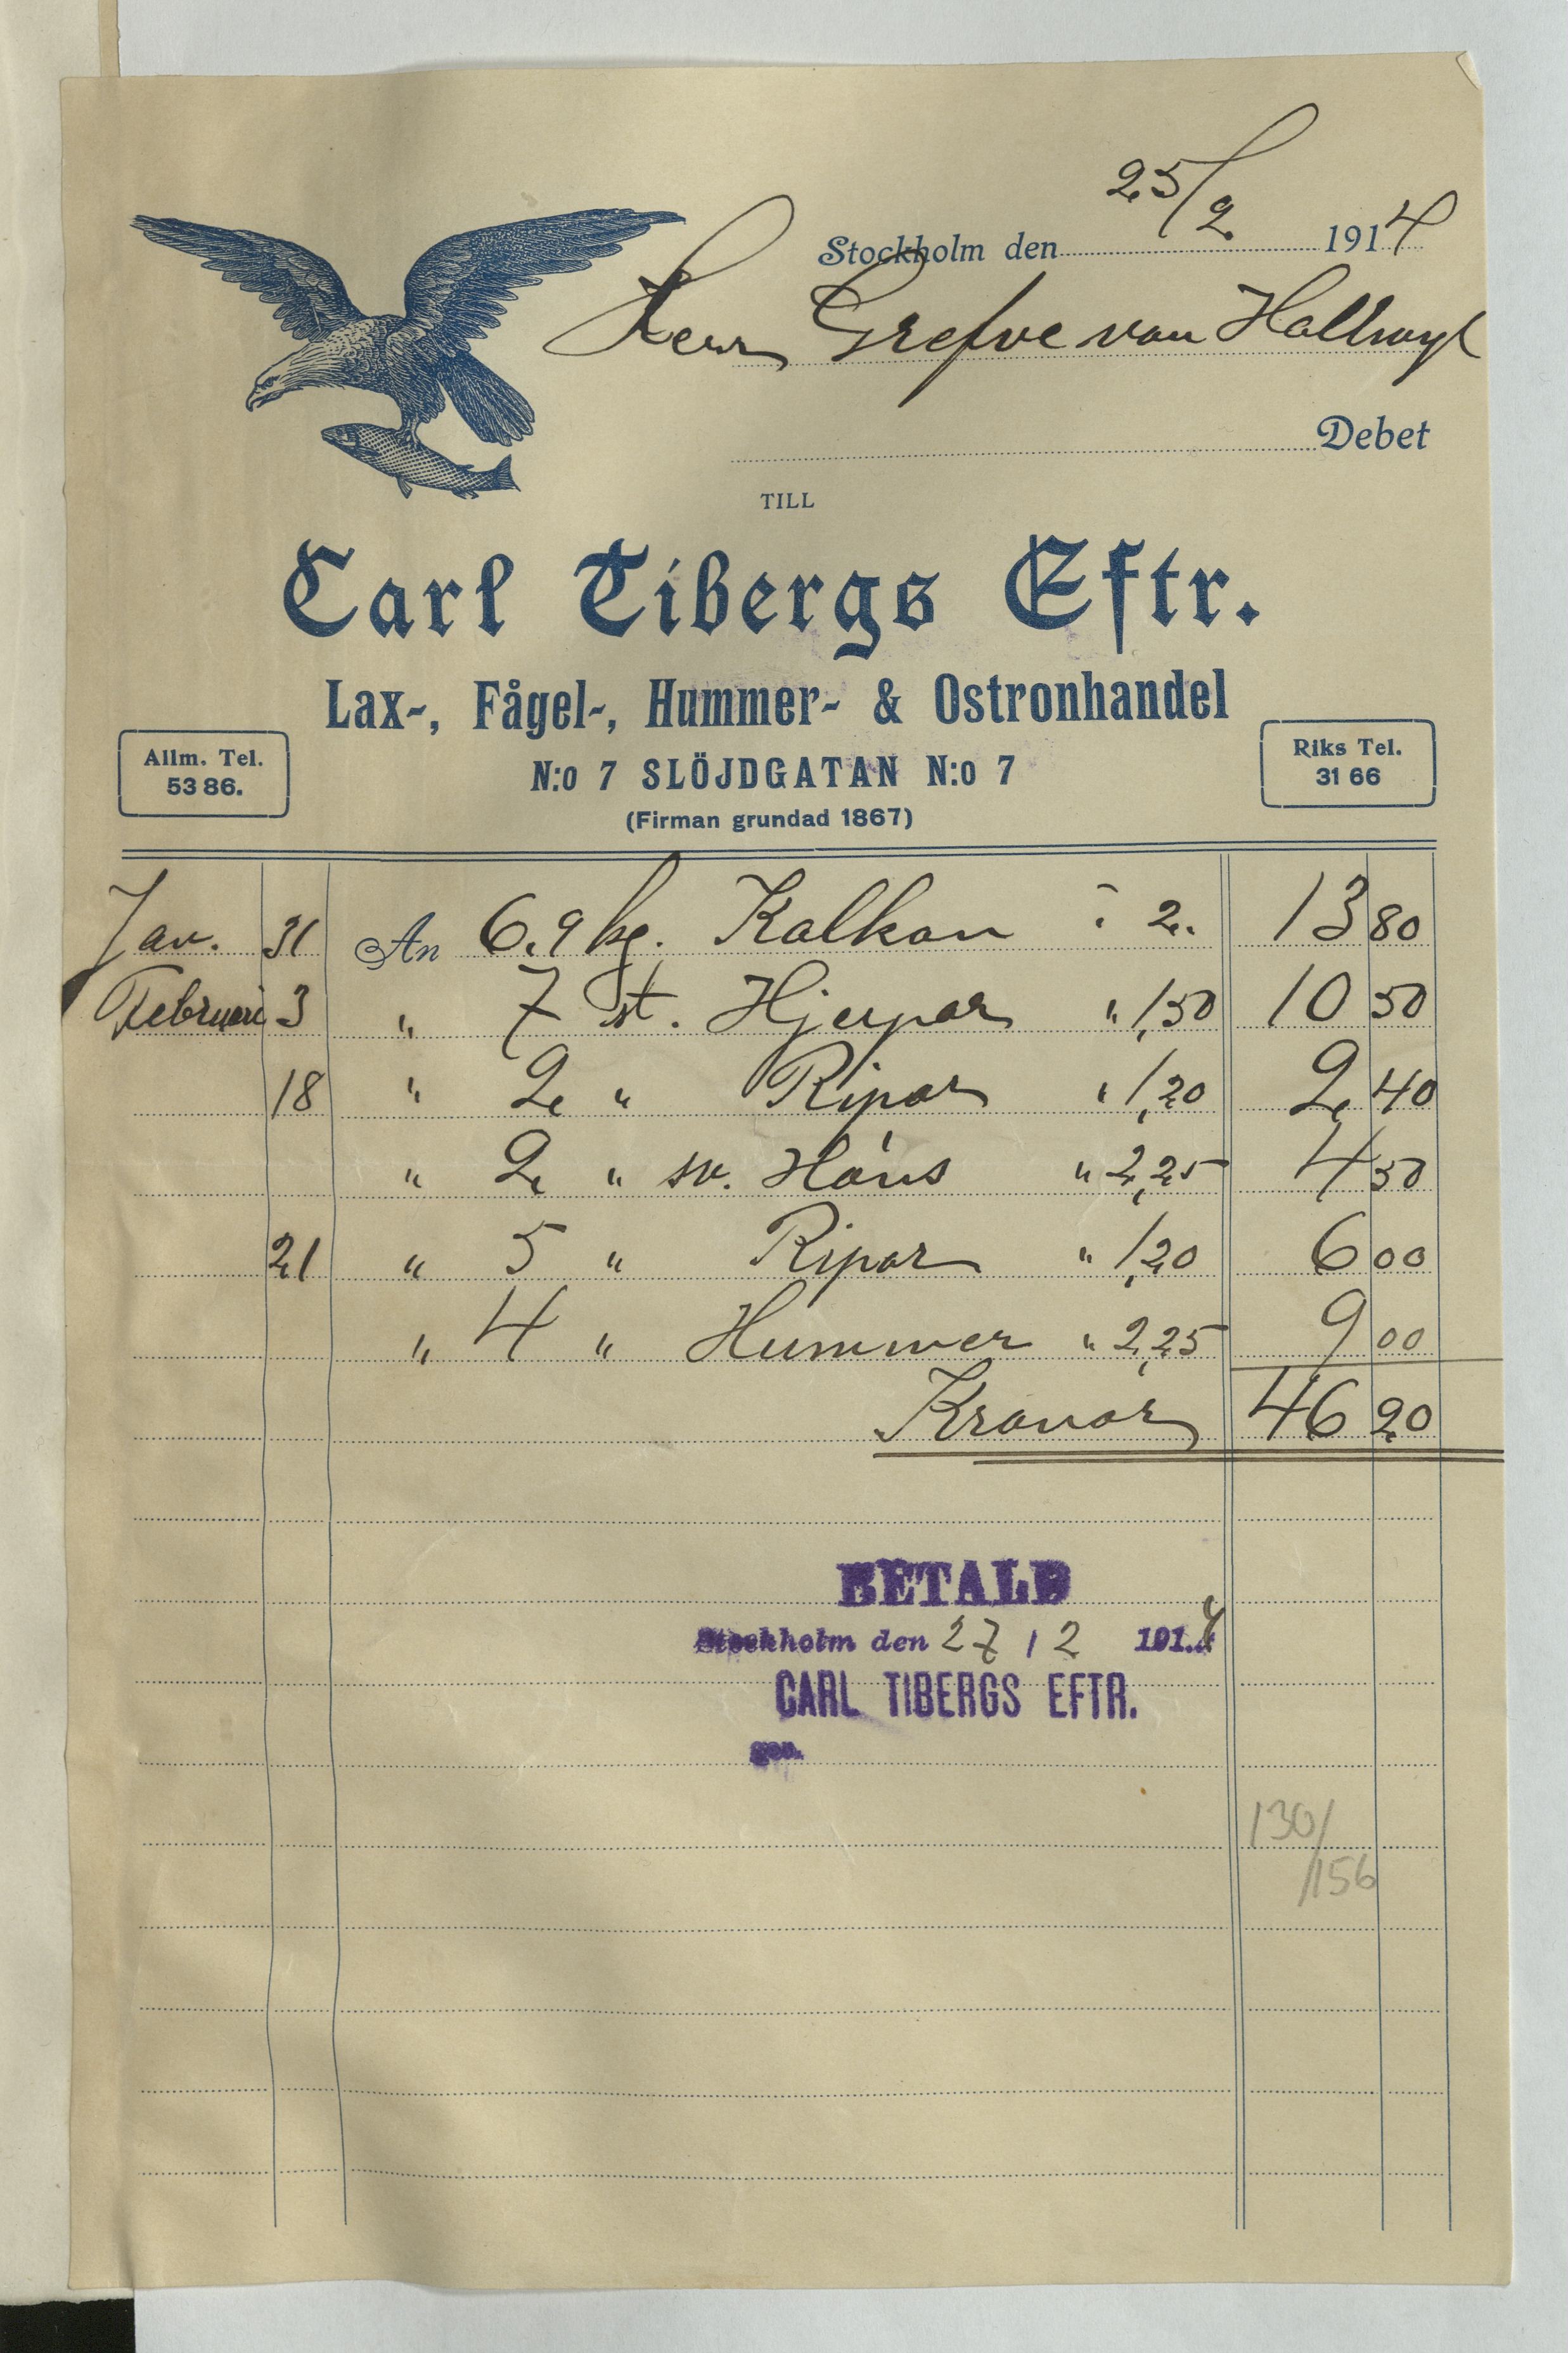 25/2
Stockholm den 1914
Herr Grefve von Hallwyl
Debet
TILL
Carl Tibergs Eftr.
Lax-, Fågel-, Hummer- & Ostronhandel
Allm. Tel.
53 86.
N:o 7 SLÖJDGATAN N:o 7
Riks Tel.
31 66
(Firman grundad 1867)
Jan. 31 An 6.9 kg. Kalkon à 2. 13 80
Februari 3 " 7 st. Hjerpar " 1,50 10 50
18 " 2 " Ripor " 1,20 2 40
" 2 " sv. Höns " 2,25 4 50
21 " 5 " Ripor " 1,20 6 00
" 4 " Hummer " 2,25 9 00
Kronor 46 20
BETALD
Stockholm den 27 / 2 1914
CARL TIBERGS EFTR.
gen.
130/
/156